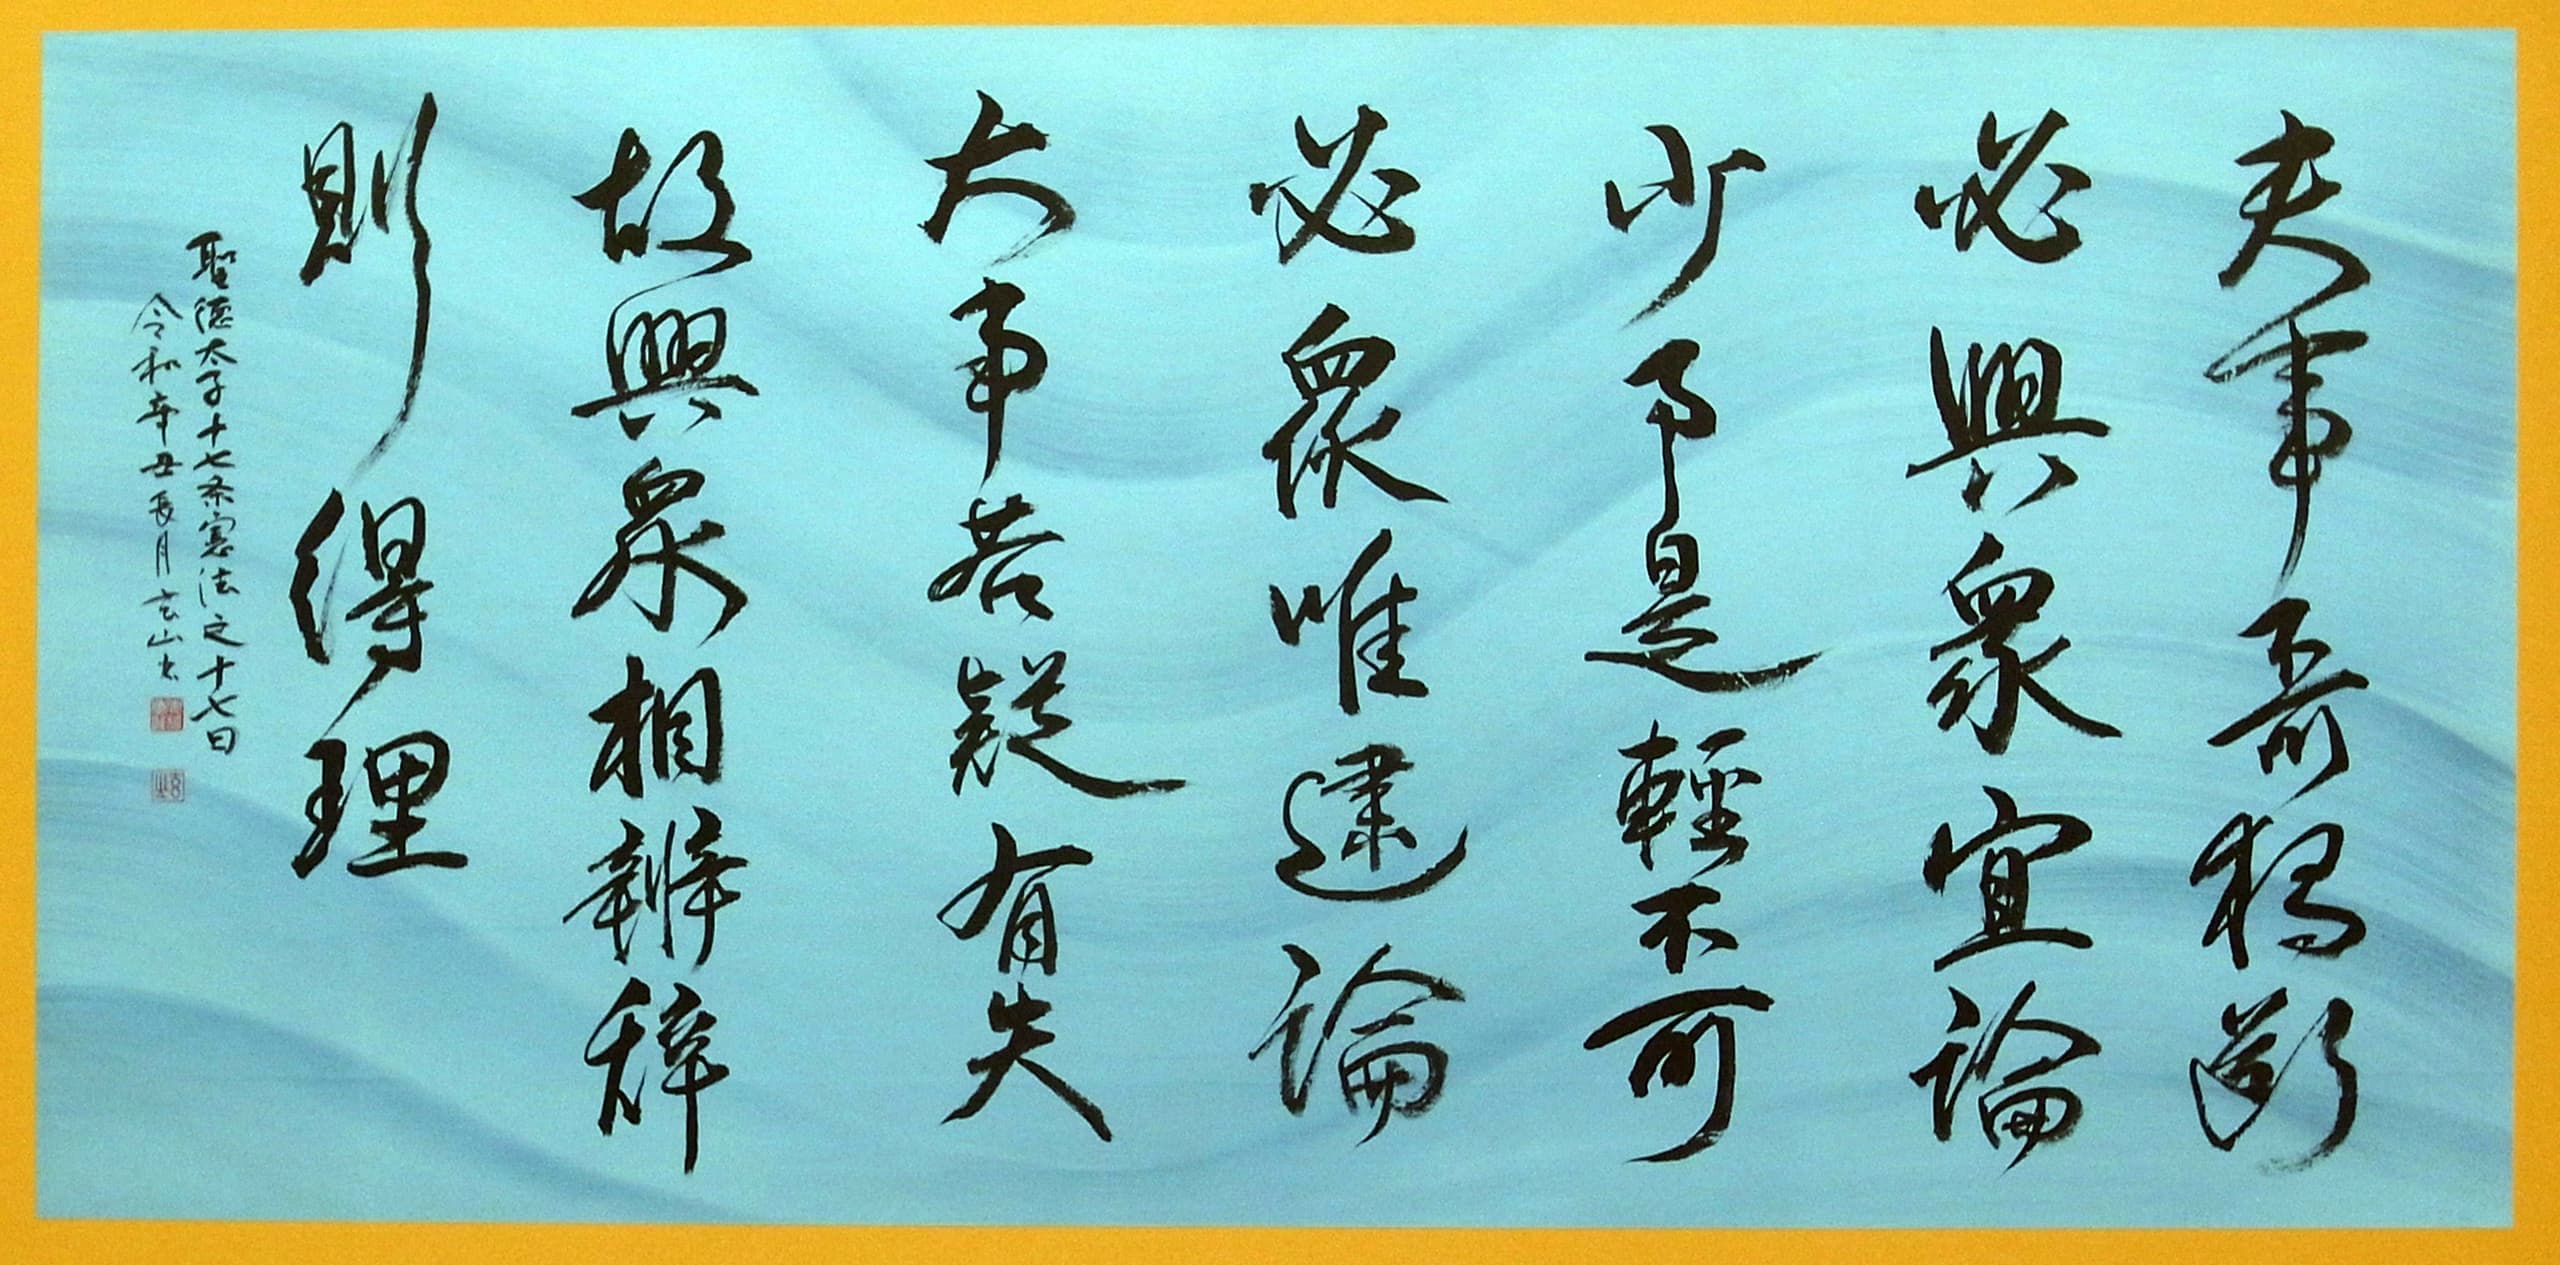 夫事不可独断
必與衆宜論
少事是輕不可
必衆唯逮論
大事若疑有失
故與衆相辨辞
則得理
聖徳太子十七条憲法之十七曰
令和辛丑長月 玄山書